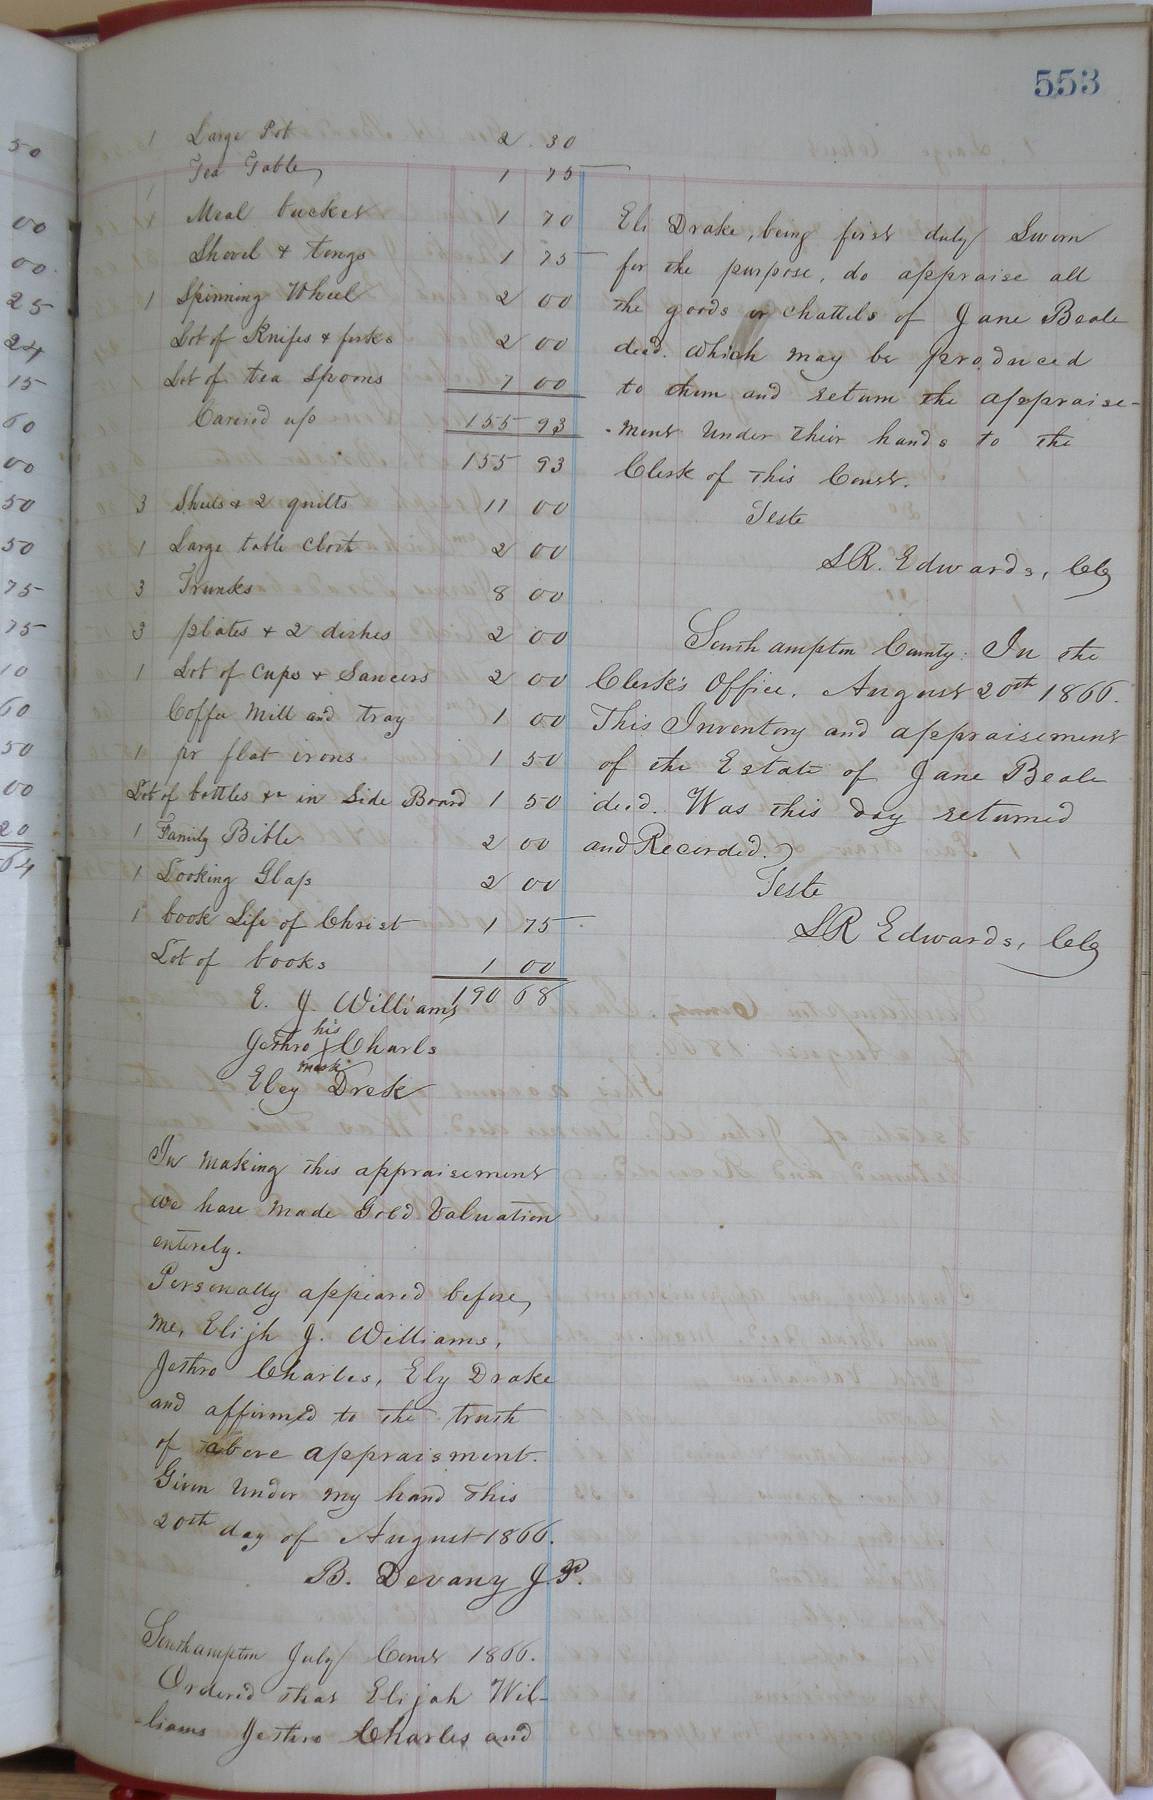 553
1 Large Pot 2 30
Tea Table 1 75
Meal bucket 1 70
Shovel & tongs 1 75
1 Spinning Wheel 2 00
Lot of Knifes & forks 2 00
1 Lot of tea spoons 7 00
Caried up 155 93
155 93
3 Sheets & 2 quilts 11 00
1 Large table cloth 2 00
3 Trunks 8 00
3 plates & 2 dishes 2 00
1 Lot of cups & Saucers 2 00
Coffee Mill and tray 1 00
1 pr flat irons 1 50
Lot of bottles &c in Side Board 1 50
1 Family Bible 2 00
1 Looking Glass 2 00
1 book Life of Christ 1 75
Lot of books 1 00
E. J. Williams 190 68
his
Jethro X Charls
mark
Eley Drek
In making this appraisement
we have made Gold Valuation
entirely.
Personally appeared before
me, Elijh J. Williams,
Jethro Charles, Ely Drake
and affirmed to the truth
of above appraisment.
Given under my hand this
20th day of August 1866.
B. Devany J.P.
Southampton July Court 1866.
Ordered that Elijah Wil-
-liams Jethro Charles and
Eli Drake, being first duly Sworn
for the purpose, do appraise all
the goods or chattels of Jane Beale
decd. which may be produced
to them and return the appraise-
-ment under their hands to the
Clerk of this Court.
Teste
LR. Edwards, Clk
Southampton County: In the
Clerk's Office. August 20th 1866.
This Inventory and appraisement
of the Estate of Jane Beale
decd. Was this day returned
and Recorded.
Teste
LR Edwards, Clk
50
00
00
25
24
15
60
00
50
50
75
75
10
60
50
00
20
64